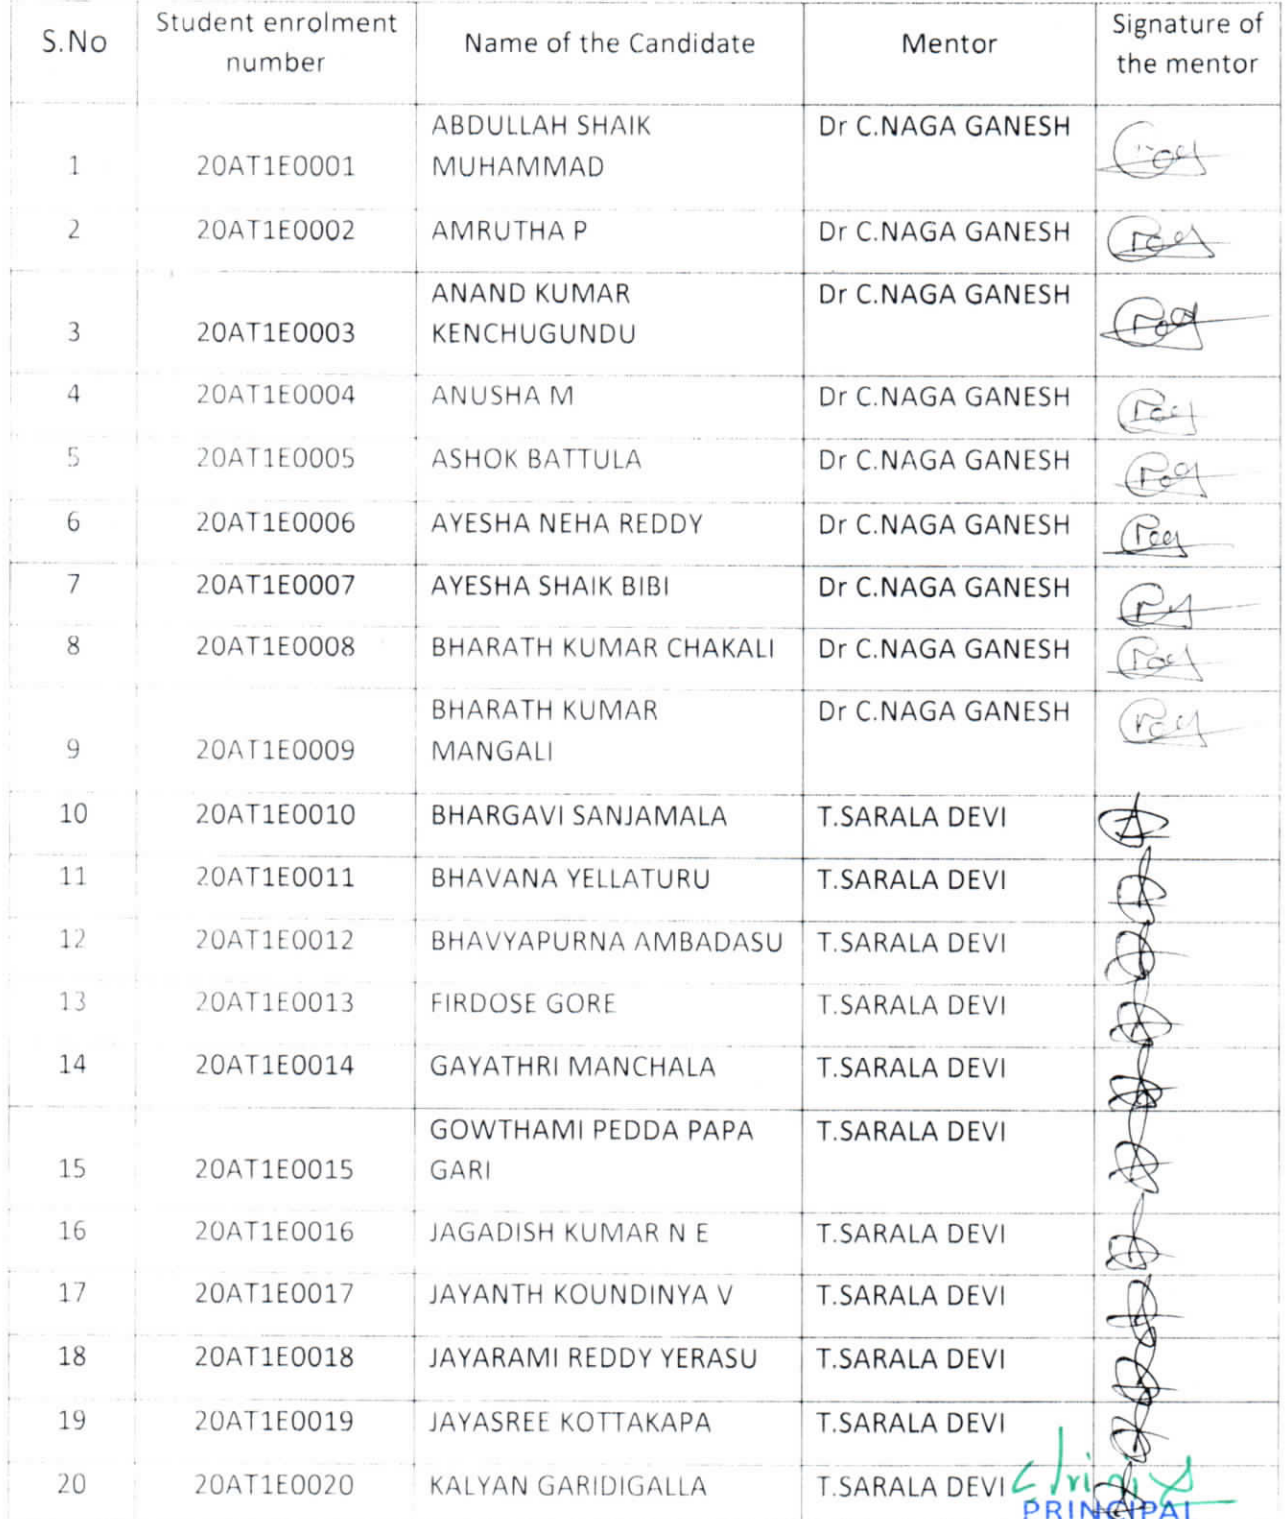 S.No Student enrolment number Name of the Candidate Mentor Signature of the mentor
1 20AT1E0001 ABDULLAH SHAIK MUHAMMAD Dr C.NAGA GANESH
2 20AT1E0002 AMRUTHA P Dr C.NAGA GANESH
3 20AT1E0003 ANAND KUMAR KENCHUGUNDU Dr C.NAGA GANESH
4 20AT1E0004 ANUSHA M Dr C.NAGA GANESH
5 20AT1E0005 ASHOK BATTULA Dr C.NAGA GANESH
6 20AT1E0006 AYESHA NEHA REDDY Dr C.NAGA GANESH
7 20AT1E0007 AYESHA SHAIK BIBI Dr C.NAGA GANESH
8 20AT1E0008 BHARATH KUMAR CHAKALI Dr C.NAGA GANESH
9 20AT1E0009 BHARATH KUMAR MANGALI Dr C.NAGA GANESH
10 20AT1E0010 BHARGAVI SANJAMALA T.SARALA DEVI
11 20AT1E0011 BHAVANA YELLATURU T.SARALA DEVI
12 20AT1E0012 BHAVYAPURNA AMBADASU T.SARALA DEVI
13 20AT1E0013 FIRDOSE GORE T.SARALA DEVI
14 20AT1E0014 GAYATHRI MANCHALA T.SARALA DEVI
15 20AT1E0015 GOWTHAMI PEDDA PAPA GARI T.SARALA DEVI
16 20AT1E0016 JAGADISH KUMAR N E T.SARALA DEVI
17 20AT1E0017 JAYANTH KOUNDINYA V T.SARALA DEVI
18 20AT1E0018 JAYARAMI REDDY YERASU T.SARALA DEVI
19 20AT1E0019 JAYASREE KOTTAKAPA T.SARALA DEVI
20 20AT1E0020 KALYAN GARIDIGALLA T.SARALA DEVI
PRINCIPAL